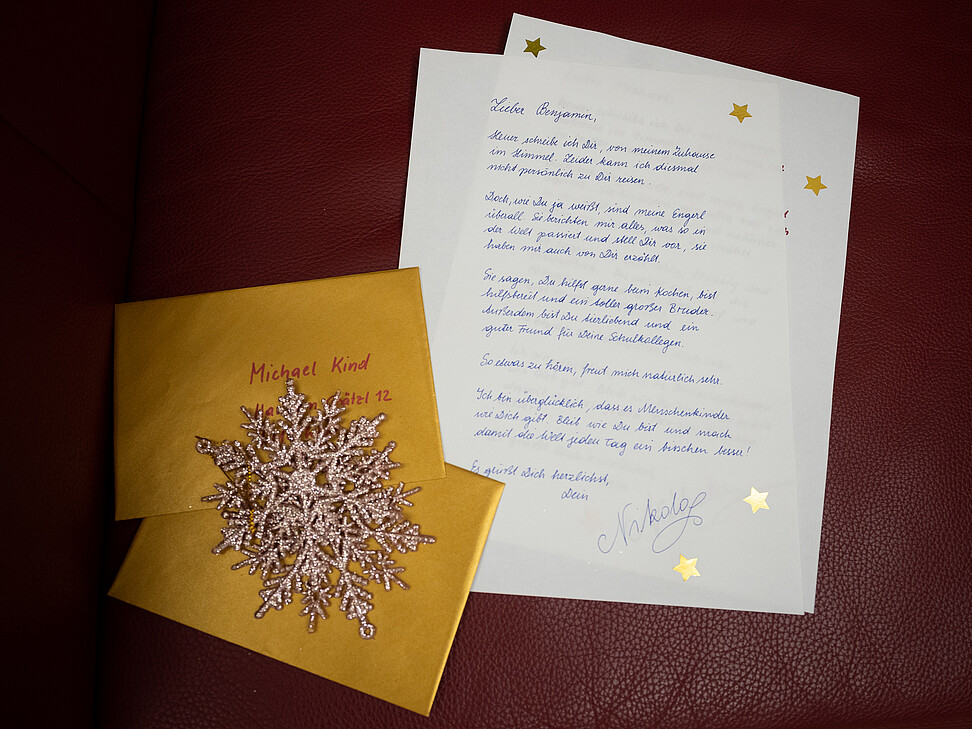 Lieber Benjamin,
Heuer schreibe ich Dir, von meinem Zuhause
im Himmel. Leider kann ich diesmal
nicht persönlich zu Dir reisen.
Doch, wie Du ja weißt, sind meine Engerl
überall. Sie berichten mir alles, was so in
der Welt passiert und stell Dir vor, sie
haben mir auch von Dir erzählt.
Sie sagen, Du hilfst gerne beim Kochen, bist
hilfsbereit und ein toller großer Bruder.
Außerdem bist Du tierliebend und ein
guter Freund für Deine Schulkollegen.
So etwas zu hören, freut mich natürlich sehr.
Ich bin überglücklich, dass es Menschenkinder
wie Dich gibt. Bleib wie Du bist und mach
damit die Welt jeden Tag ein bisschen besser!
Es grüßt Dich herzlichst,
Dein
Nikolo
Michael Kind
12